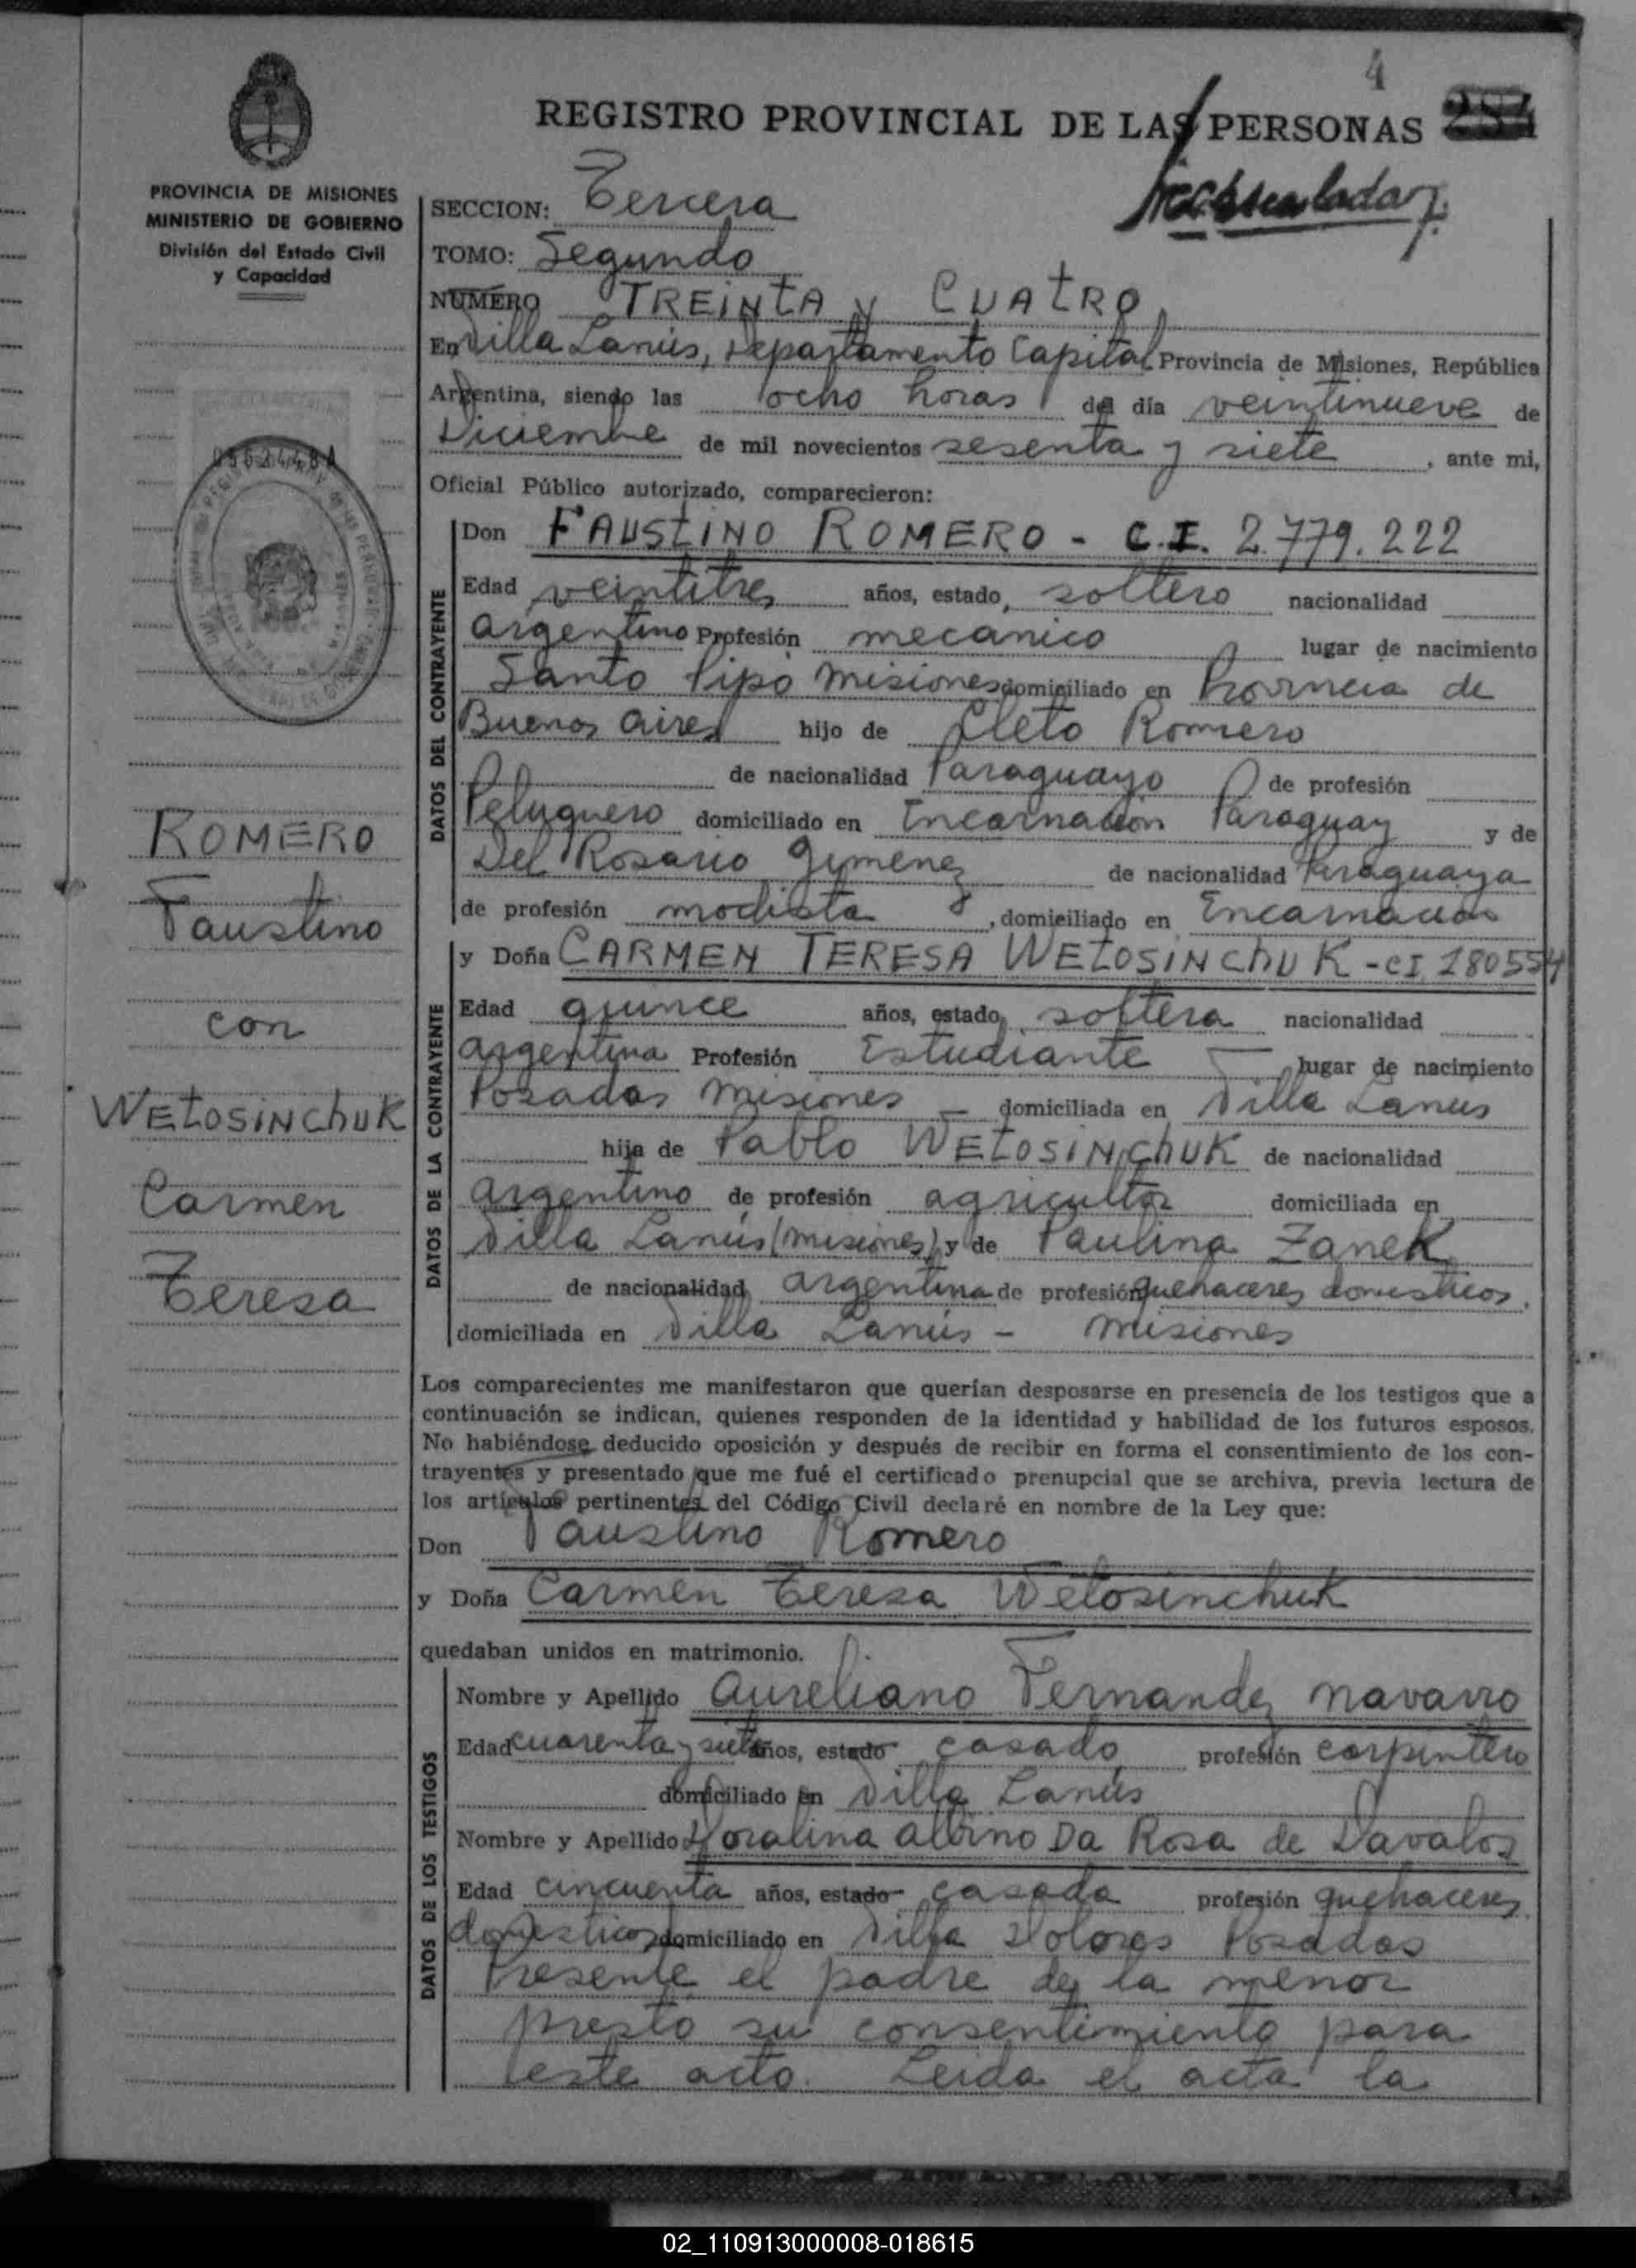 4
REGISTRO PROVINCIAL DE LAS PERSONAS 284
PROVINCIA DE MISIONES
MINISTERIO DE GOBIERNO
División del Estado Civil
y Capacidad
SECCION: Tercera
TOMO: Segundo
NUMERO TREINTA y CUATRO
En Villa Lanús, Departamento Capital Provincia de Misiones, República
Argentina, siendo las ocho horas del día veintinueve de
Diciembre de mil novecientos sesenta y siete, ante mi,
Oficial Público autorizado, comparecieron:
DATOS DEL CONTRAYENTE
Don FAUSTINO ROMERO - C.I. 2.779.222
Edad veintitres años, estado soltero nacionalidad
argentino Profesión mecanico lugar de nacimiento
Santo Pipó Misiones domiciliado en Provincia de
Buenos Aires hijo de Cleto Romero
de nacionalidad Paraguayo de profesión
Peluquero domiciliado en Encarnación Paraguay y de
Del Rosario Gimenez de nacionalidad Paraguaya
de profesión modista, domiciliado en Encarnación
DATOS DE LA CONTRAYENTE
y Doña CARMEN TERESA WETOSINChUK - CI 180554
Edad quince años, estado soltera nacionalidad
argentina Profesión Estudiante lugar de nacimiento
Posadas Misiones - domiciliada en Villa Lanus
hija de Pablo WETOSINChUK de nacionalidad
argentino de profesión agricultor domiciliada en
Villa Lanús (Misiones) y de Paulina Zanek
de nacionalidad argentina de profesión quehaceres domesticos.
domiciliada en Villa Lanús - Misiones
Los comparecientes me manifestaron que querían desposarse en presencia de los testigos que a
continuación se indican, quienes responden de la identidad y habilidad de los futuros esposos.
No habiéndose deducido oposición y después de recibir en forma el consentimiento de los con-
trayentes y presentado que me fué el certificado prenupcial que se archiva, previa lectura de
los artículos pertinentes del Código Civil declaré en nombre de la Ley que:
Don Faustino Romero
y Doña Carmen Teresa Wetosinchuk
quedaban unidos en matrimonio.
DATOS DE LOS TESTIGOS
Nombre y Apellido Aureliano Fernandez Navarro
Edad cuarenta y siete años, estado casado profesión carpintero
domiciliado en Villa Lanús
Nombre y Apellido Doralina Albino Da Rosa de Davalos
Edad cincuenta años, estado casada profesión quehaceres
domesticos domiciliado en Villa Dolores Posadas
Presente el padre de la menor
prestó su consentimiento para
este acto. Leida el acta la
ROMERO
Faustino
con
WETOSINChUK
Carmen
Teresa
02_110913000008-018615